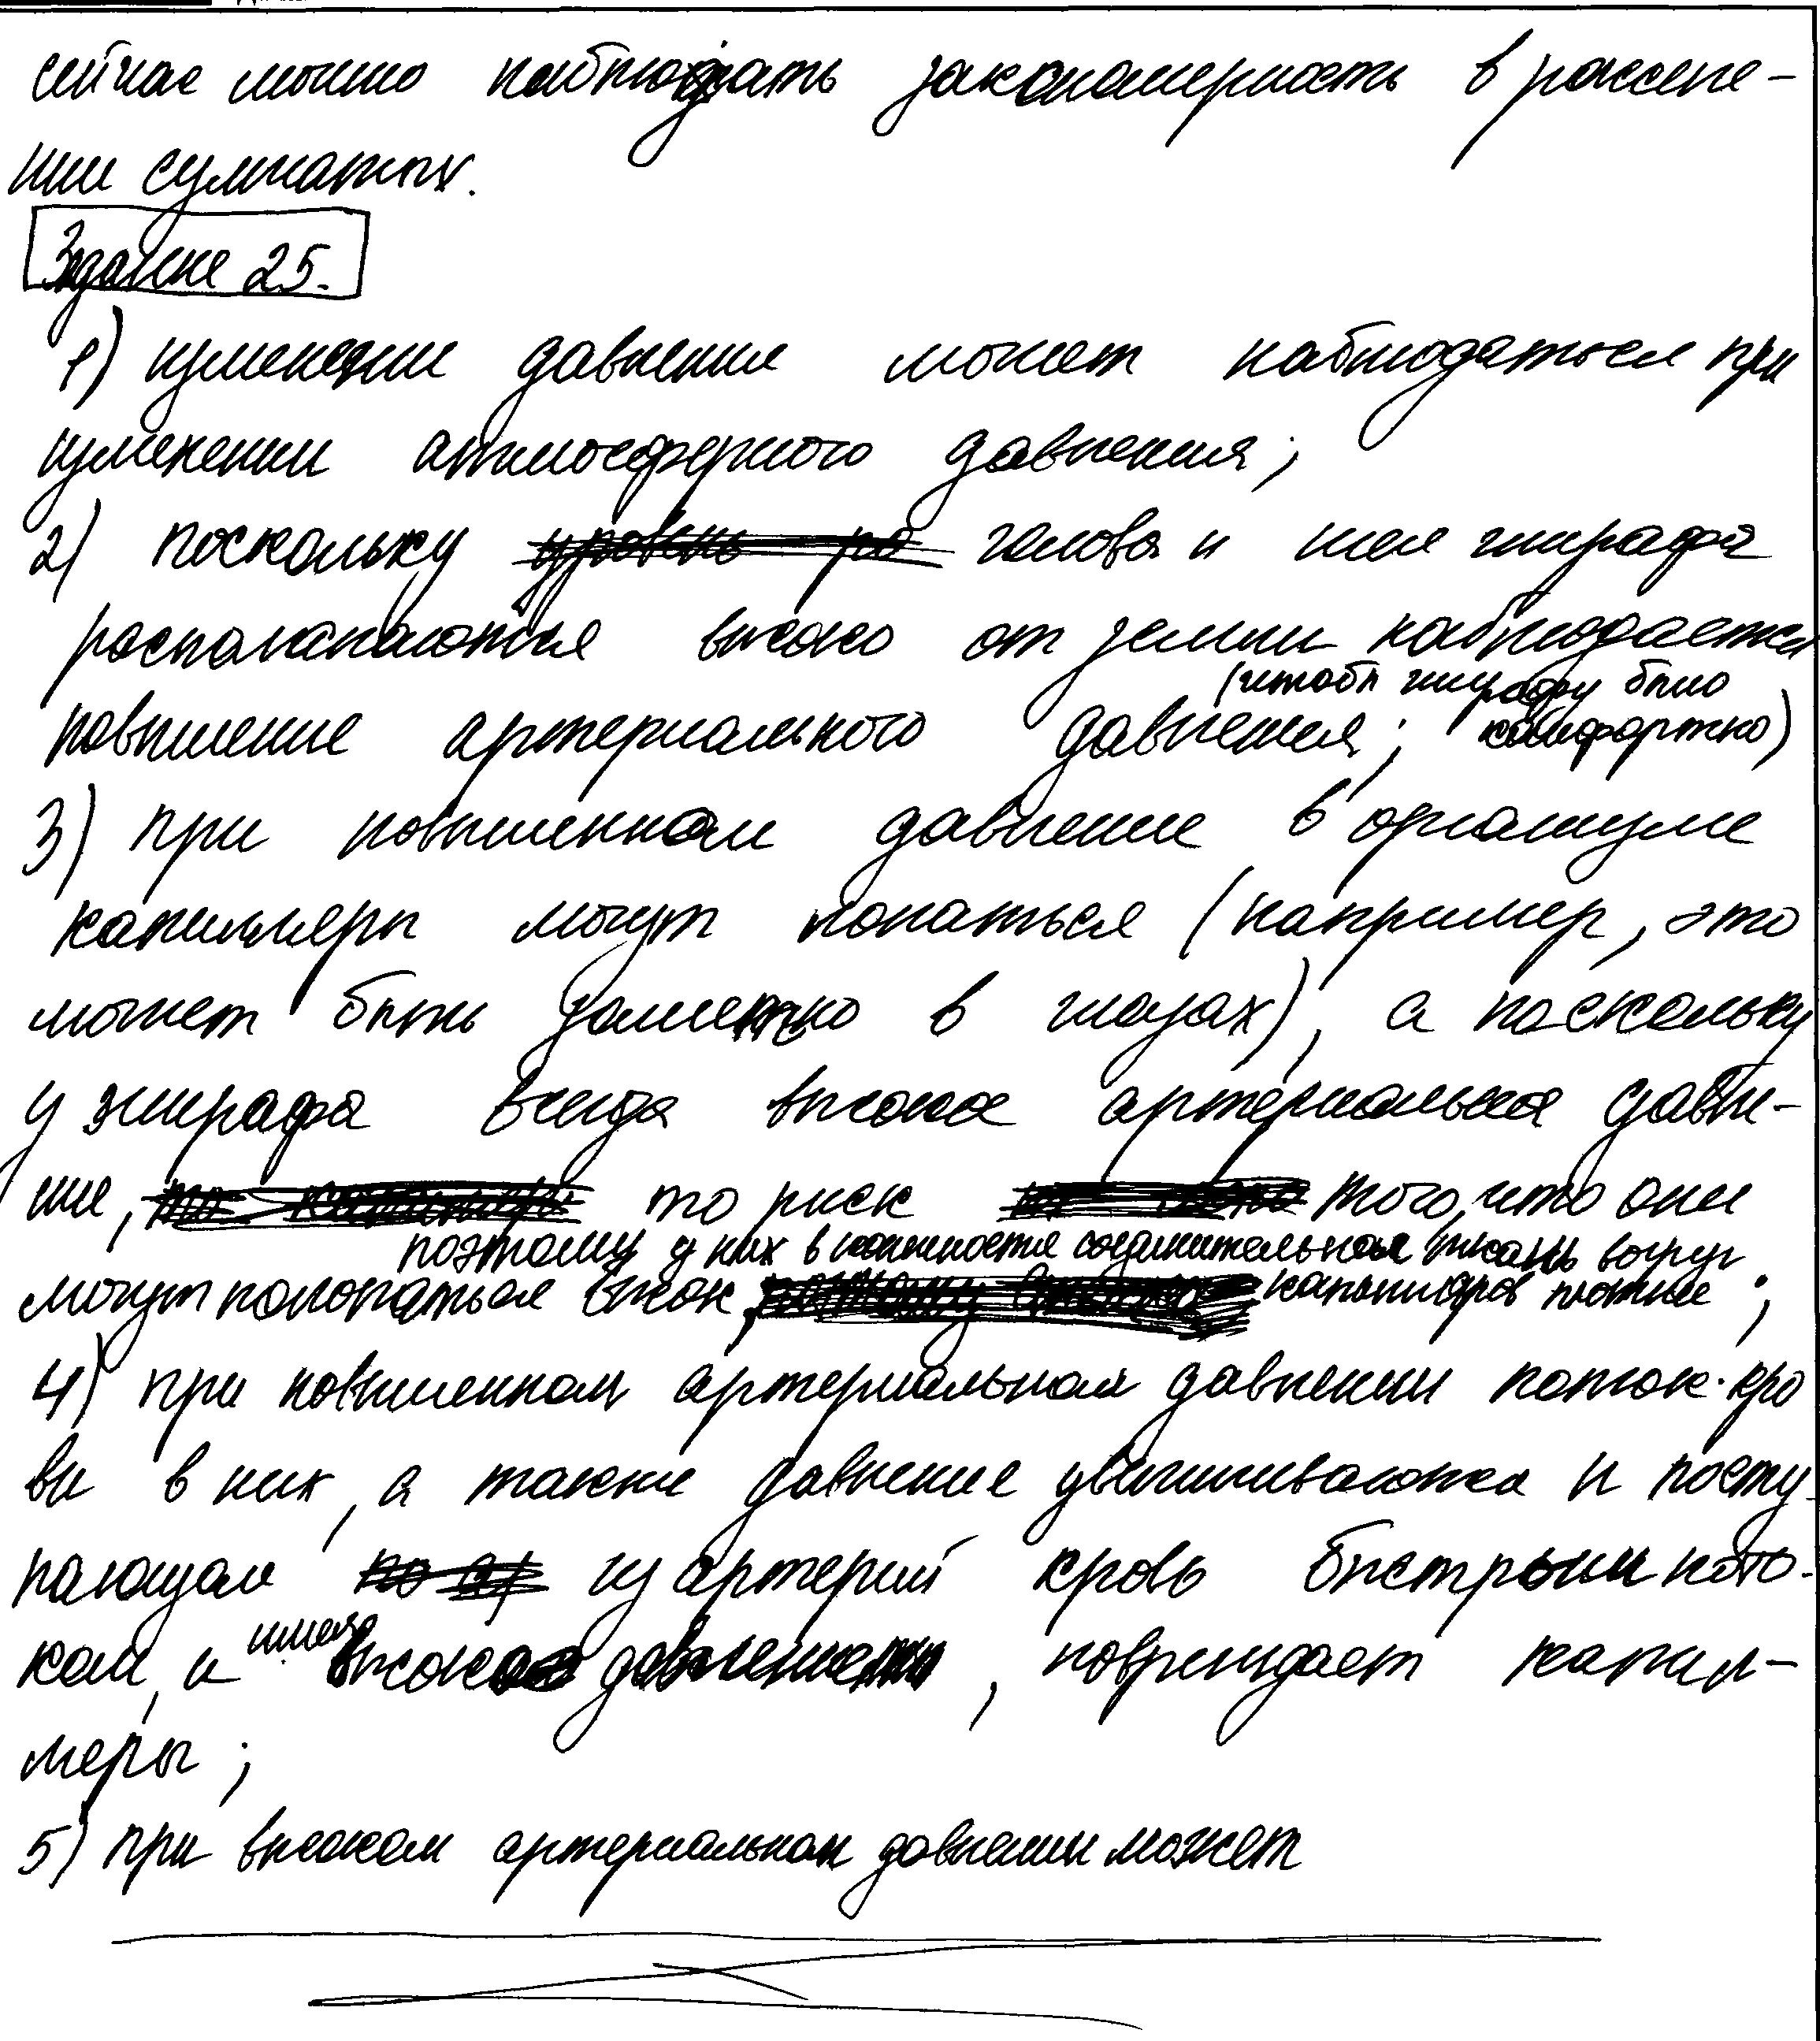 сейчас можно наблюдать закономерность в расселе-
нии сумчатых.
Задание 25.
1) изменении давления может наблюдаться при
изменении атмосферного давления;
2) поскольку голова и шея жирафа
располагаются высоко от земли наблюдается
(чтобы жирафу было
повышение артериального давления; комфортно)
3) при повышенном давление в организме
капилляры могут лопаться (например, это
может быть заметно в глазах), а поскольку
у жирафа всегда высокое артериальное давле-
ние, то риск того, что они
поэтому у них в конечностях соединительная ткань вокруг
могут полопаться высок, капилляров плотнее;
4) при повышенном артериальном давлении поток кро
ви в них, а также давление увеличиваются и посту-
пающая из артерий кровь быстрым пото-
ком, и имея высокое давление, повреждает капил-
ляры;
5) при высоком артериальном давлении может